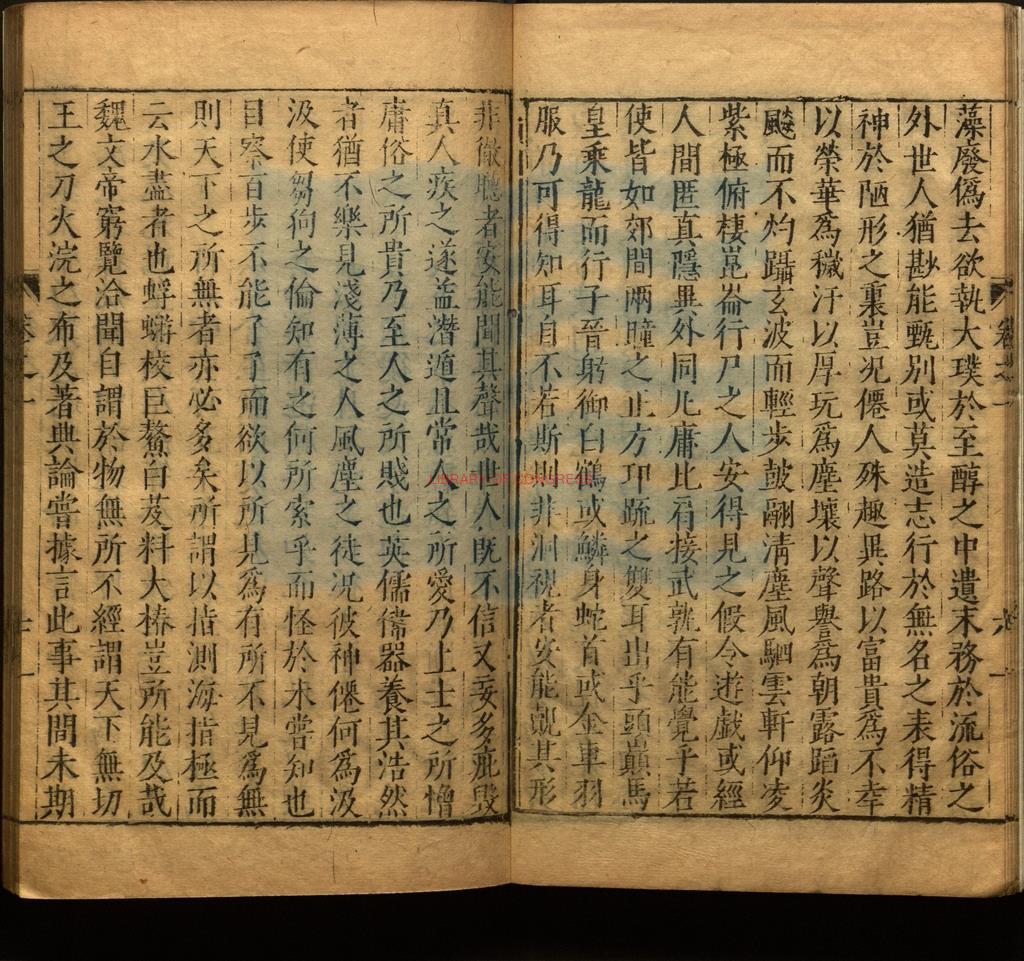 藻廢偽去欲執大璞於至醇之中遺末務於流俗之
外世人猶尠能甄別或莫造志行於無名之表得精
神於陋形之裏豈況僊人殊趣異路以富貴為不幸
以榮華為穢汙以厚玩為塵壤以聲譽為朝露蹈炎
飈而不灼躡玄波而輕步鼓翮清塵風駟雲軒仰凌
紫極俯棲崑崙行尸之人安得見之假令遊戲或經
人間匿真隱異外同凡庸比肩接武孰有能覺乎若
使皆如郊間兩瞳之正方邛疏之雙耳出乎頭巔馬
皇乘龍而行子晉躬御白鶴或鱗身蛇首或金車羽
服乃可得知耳自不若斯則非洞視者安能覿其形
卷之一
六
非徹聽者安能聞其聲哉世人既不信又妄多疵毀
真人疾之遂益潛遁且常人之所愛乃上士之所憎
庸俗之所貴乃至人之所賤也英儒偉器養其浩然
者猶不樂見淺薄之人風塵之徒況彼神僊何為汲
汲使芻狗之倫知有之何所索乎而怪於未嘗知也
目察百步不能了了而欲以所見為有所不見為無
則天下之所無者亦必多矣所謂以指測海指極而
云水盡者也蜉蝣校巨鰲白芨料大椿豈所能及哉
魏文帝窮覽洽聞自謂於物無所不經謂天下無切
玉之刀火浣之布及著典論嘗據言此事其間未期
卷之一
七
LIBRARY OF CONGRESS